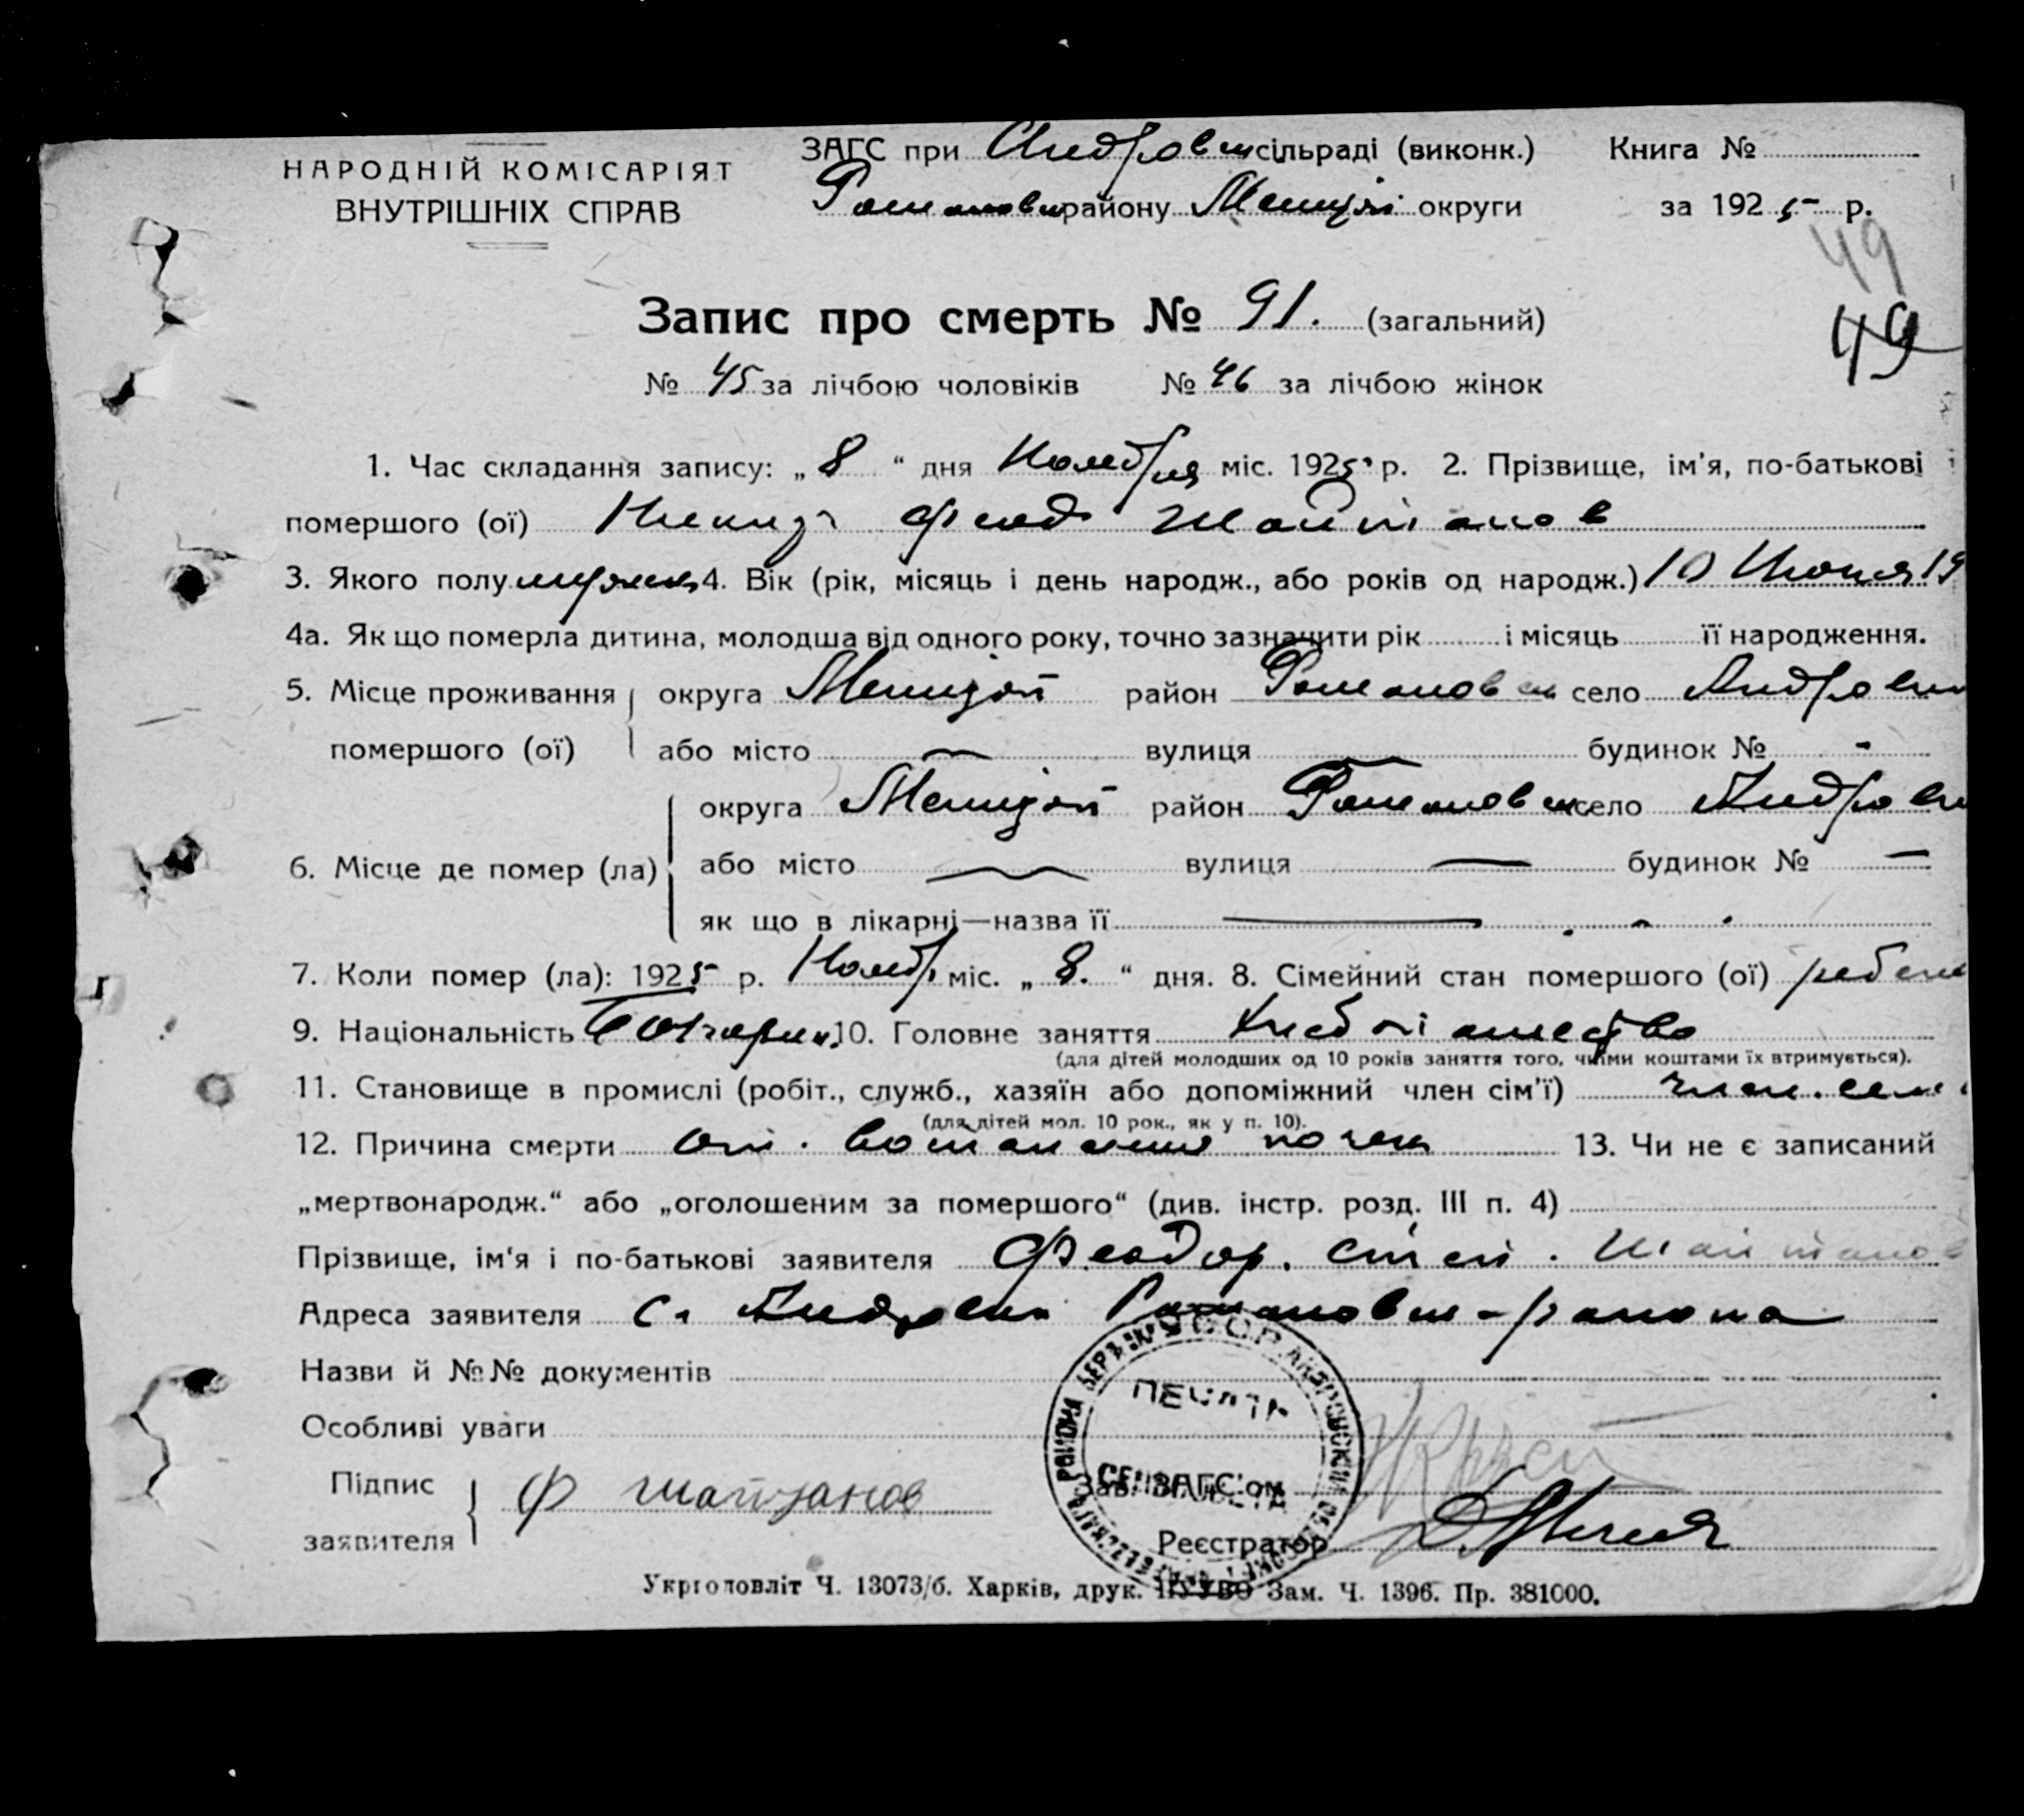 НАРОДНІЙ КОМІСАРІЯТ
ВНУТРІШНІХ СПРАВ
ЗАГС при Андровск сільраді (виконк.) Книга №
Романовск району Мелитоп округи за 1925 р.
49
49
Запис про смерть № 91. (загальний)
№ 45 за лічбою чоловіків № 46 за лічбою жінок
1. Час складання запису: „ 8 “ дня Ноября міс. 1925 р. 2. Прізвище, ім'я, по-батькові
помершого (ої) Феод Шайтанов
3. Якого полу мужск 4. Вік (рік, місяць і день народж., або років од народж.) 10 19
4а. Як що померла дитина, молодша від одного року, точно зазначити рік і місяць її народження.
5. Місце проживання округа район Романовск село Андровк
помершого (ої) або місто вулиця будинок № -
округа район Романовск село Андровк
6. Місце де помер (ла) або місто вулиця — будинок № —
як що в лікарні—назва її
7. Коли помер (ла): 1925 р. Ноябр міс. „ 8. “ дня. 8. Сімейний стан помершого (ої) ребен
9. Національність Болгарин 10. Головне заняття хлебопашество
(для дітей молодших од 10 років заняття того, чиїми коштами їх втримується).
11. Становище в промислі (робіт., служб., хазяїн або допоміжний член сім'ї) член. сем
(для дітей мол. 10 рок., як у п. 10).
12. Причина смерти от. почек 13. Чи не є записаний
„мертвонародж.“ або „оголошеним за помершого“ (див. інстр. розд. III п. 4)
Прізвище, ім'я і по-батькові заявителя Феодор. Шайтанов
Адреса заявителя с. Андровк Романовск-района
Назви й №№ документів
Особливі уваги
Підпис
заявителя Ф Шайтанов
ПЕЧАТЬ
Зав. ЗАГС'ом
Реєстратор
Укрголовліт Ч. 13073/б. Харків, друк. Зам. Ч. 1396. Пр. 381000.